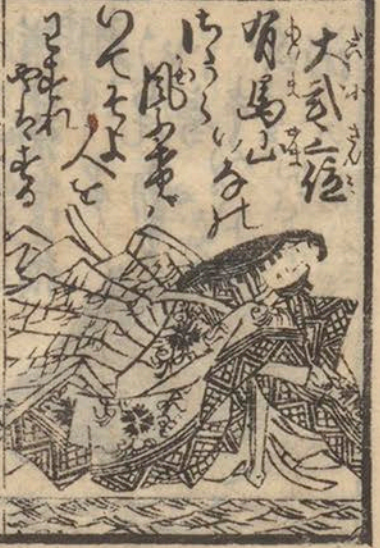 大弐三位
有馬山
いなの
さゝ原
風ふけハ
いてそよ
人を
わすれ
やはする